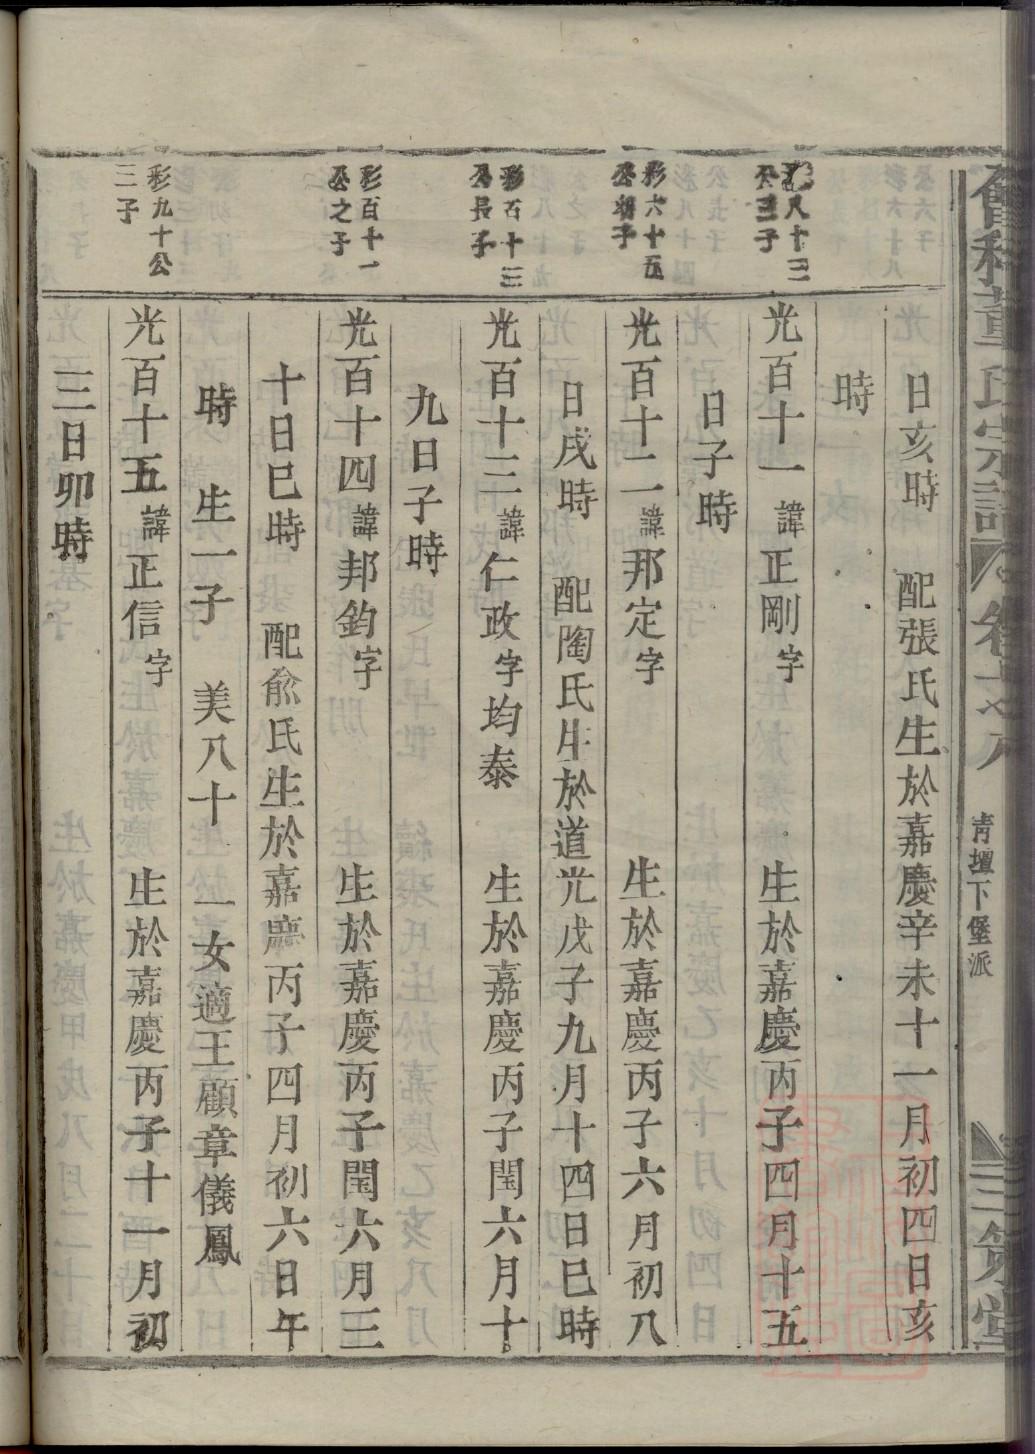 董氏宗譜 卷
青壇下堡派
三
日亥時 配張氏生於嘉慶辛未十一月初四日亥
時
八十三
公三子
光百十一 諱正剛字 生於嘉慶丙子四月十五
日子時
彩六十五
公朝子
光百十二 諱邦定字 生於嘉慶丙子六月初八
日戌時 配陶氏生於道光戊子九月十四日巳時
彩百十三
公長子
光百十三 諱仁政字均泰 生於嘉慶丙子閏六月十
九日子時
彩百十一
公之子
光百十四 諱邦鈞字 生於嘉慶丙子閏六月三
十日巳時 配俞氏生於嘉慶丙子四月初六日午
時 生一子 美八十 一女適王顧章儀鳳
彩九十公
三子
光百十五 諱正信字 生於嘉慶丙子十一月初
三日卯時